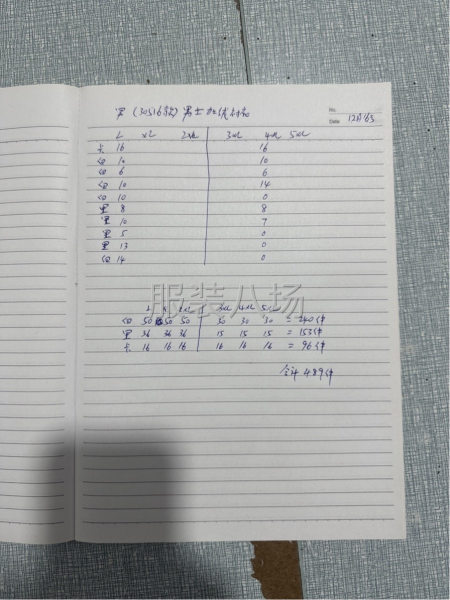 No.
Date 12月3号
(30516款) 男士
L XL 2XL 3XL 4XL 5XL
卡 16 16
白 10 10
白 6 6
白 10 14
白 10 0
黑 8 8
黑 10 7
黑 5 0
黑 13 0
白 14 0
服装八场
L XL 2XL 3XL 4XL 5XL
白 50 50 50 30 30 30 = 240件
黑 36 36 36 15 15 15 = 153件
卡 16 16 16 16 16 16 = 96件
合计 489件